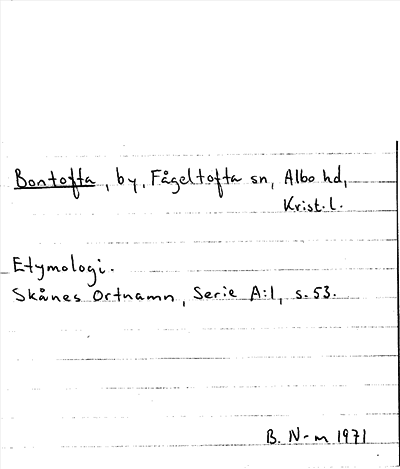 Bontofta, by, Fågeltofta sn, Albo hd,
Krist. l.
Etymologi.
Skånes Ortnamn, Serie A:1, s. 53.
B. N-m 1971